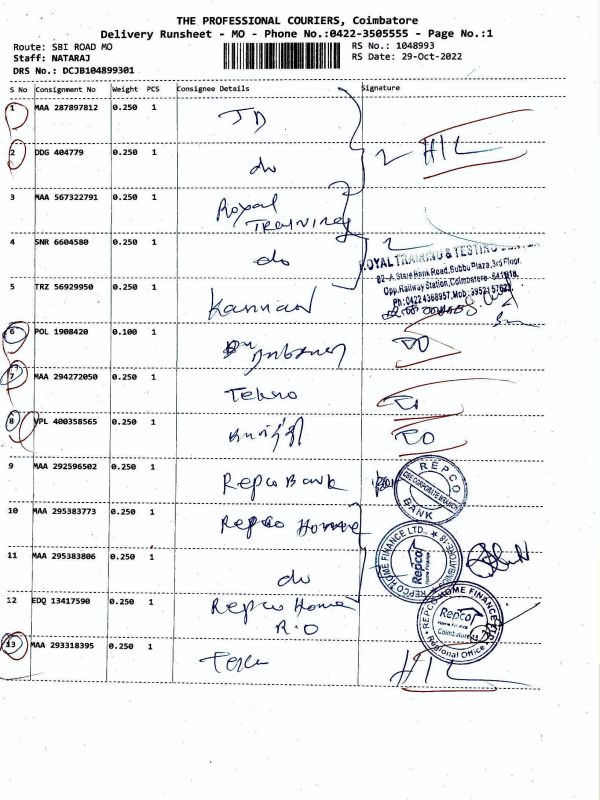 THE PROFESSIONAL COURIERS, Coimbatore
Delivery Runsheet - MO - Phone No.:0422-3505555 - Page No.:1
Route: SBI ROAD MO
RS No.: 1048993
Staff: NATARAJ
RS Date: 29-Oct-2022
DRS No.: DCJB104899301
S No Consignment No Weight PCS Consignee Details Signature
1 MAA 287897812 0.250 1 JD
2 DDG 404779 0.250 1 do 2 HIL
3 MAA 567322791 0.250 1 Royal
Training
4 SNR 6604580 0.250 1 do 2
ROYAL TRAINING & TESTING
82-A, State Bank Road, Subbu Plaza, 3rd Floor,
Opp. Railway Station, Coimbatore - 641018,
5 TRZ 56929950 0.250 1 Kannan
6 POL 1908420 0.100 1
7 MAA 294272050 0.250 1 Tekno
8 VPL 400358565 0.250 1
9 MAA 292596502 0.250 1 Repco Bank
REPCO BANK
CBE CORPORATE BRANCH
10 MAA 295383773 0.250 1 Repco Home
REPCO HOME FINANCE LTD., ★ COIMBATORE-18 ★
Repco
Home Finance
11 MAA 295383806 0.250 1 do
12 EDQ 13417590 0.250 1 Repco Home
R.O
REPCO HOME FINANCE
Repco
Home Finance
Coimbatore
Regional Office
13 MAA 293318395 0.250 1 HIL